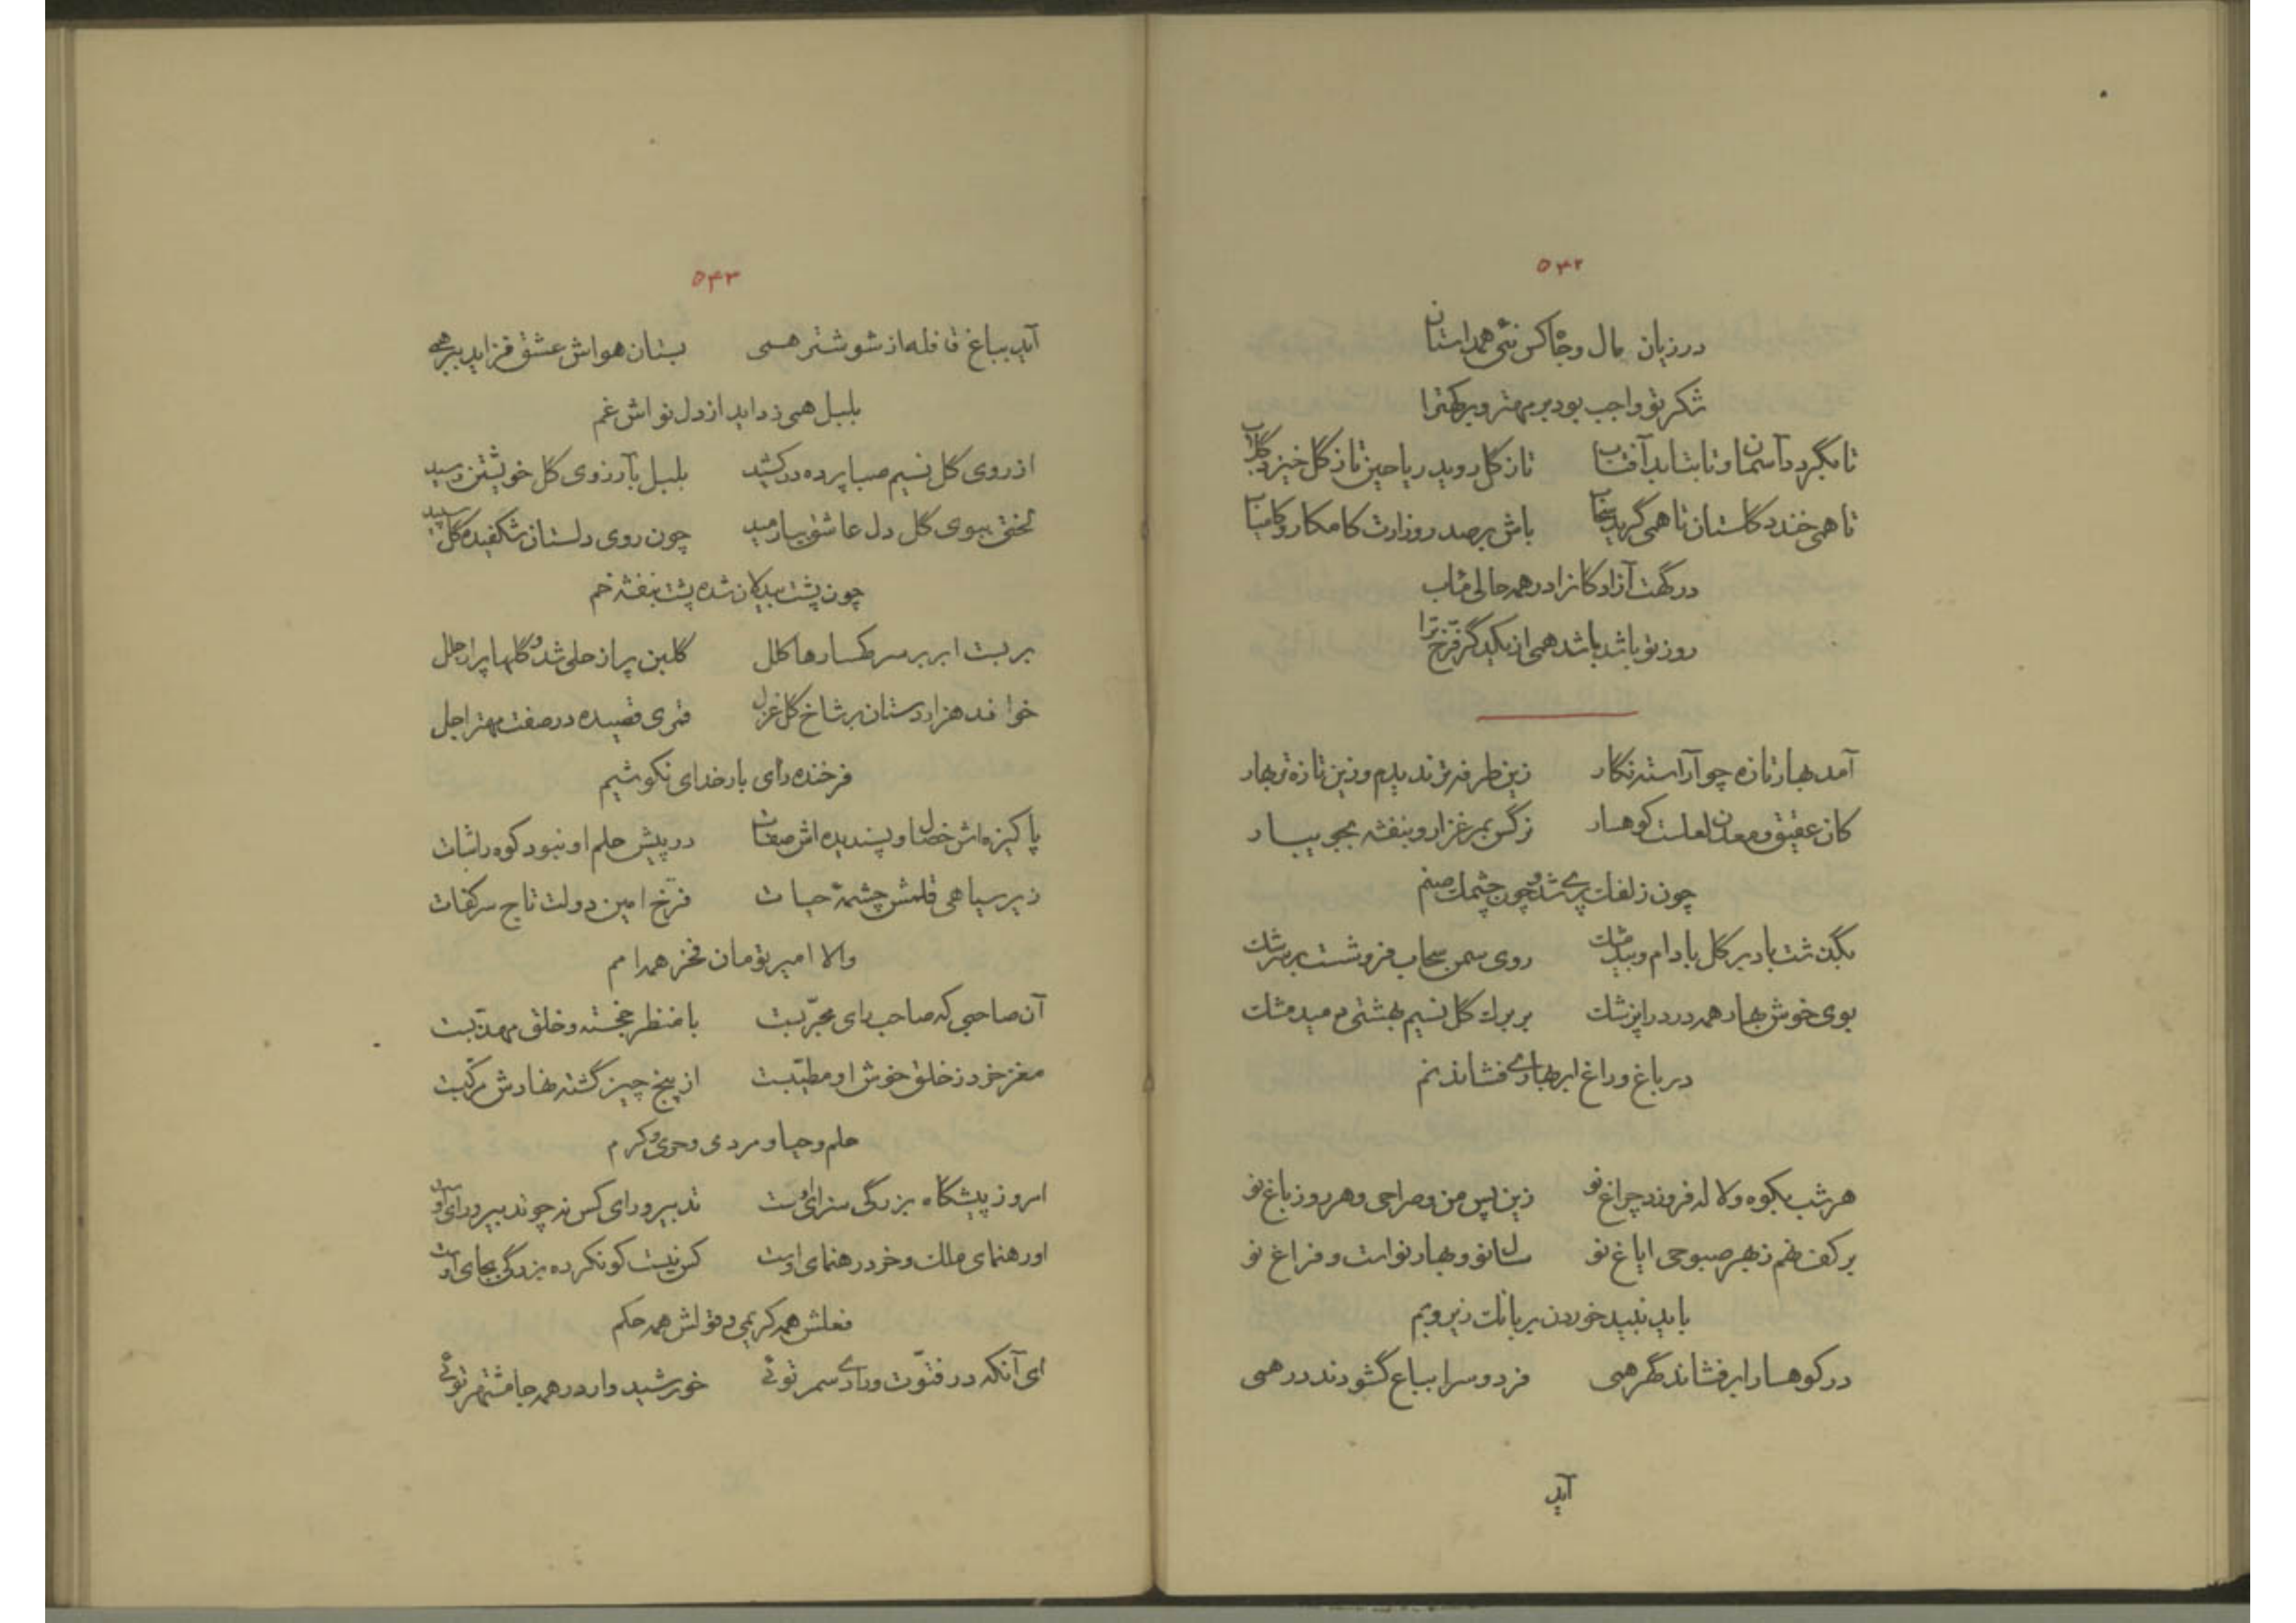 ۵۴۲
در زیان مال و جاه کس نئی همداستان
شکر تو واجب بود بر مهتر و بر کهترا
تا بگردد آسمان و تا بتابد آفتاب تا ز گل روید ریاحین تا ز گل خیزد گلاب
تا همی خندد گلستان تا همی گرید سحاب باش بر صدر وزارت کامکار و کامیاب
درگهت آزادگانرا در همه حالی مآب
روز تو باشد باشد همی از یکدگر فرّخ‌ترا
آمد بهار تازه چو آراسته نگار زین طرفه‌تر ندیدم و زین تازه‌تر بهار
کان عقیق و معدن لعلست کوهسار نرگس بمرغزار و بنفشه بجویبار
چون زلفک پری شد و چون چشمک صنم
بگذشت باد بر گل بادام و بید مشک روی سمن سحاب فروشست بر سرشک
بوی خوش بهار همه درد را پزشک بر برگ گل نسیم بهشتی دمید مشک
در باغ و راغ ابر بهاری فشاند نم
هر شب بکوه و لاله فروزد چراغ نو زین پس من و صراحی و هر روز باغ نو
بر کف نهم ز بهر صبوحی ایاغ نو سال نو و بهار نو است و فراغ نو
باید نبید خوردن بر بانگ زیر و بم
در کوهسار ابر فشاند گهر همی فردوس را بباغ گشودند در همی
آید
۵۴۳
آید بباغ قافله از شوشتر همی بستان هواش عشق فزاید ببر همی
بلبل همی زداید از دل نواش غم
از روی گل نسیم صبا پرده در کشید بلبل بآرزوی گل خویشتن رسید
لختی ببوی گل دل عاشق بیارمید چون روی دلستان شکفیده گل سپید
چون پشت بیدلان شده پشت بنفشه خم
بر بست ابر بر سر کهسارها کلل گلبن پر از حلی شد و گلها پر از حلل
خواند هزاردستان بر شاخ گل غزل قمری قصیده در صفت مهتر اجل
فرخنده رای بار خدای نکو شیم
پاکیزه‌اش خصال و پسندیده‌اش صفات در پیش حلم او نبود کوه را ثبات
زیر سیاهی قلمش چشمهٔ حیات فرّخ امین دولت تاج سر کفات
والا امیر تومان فخر همه امم
آن صاحبی که صاحب رای مجرّبست با منظر خجسته و خلق مهذّبست
مغز خرد ز خلق خوش او مطیّبست از پنج چیز گشته نهادش مرکّبست
حلم و حیا و مردی و خوی و کرم
امروز پیشگاه بزرگی سزای اوست تدبیر و رای کس نه چو تدبیر و رای اوست
او رهنمای ملک و خرد رهنمای اوست کس نیست کو نکرده بزرگی بجای اوست
فعلش همه کریمی و قولش همه حکم
ای آنکه در فتوّت و رادی سمر توئی خورشیدوار در همه جا مشتهر توئی